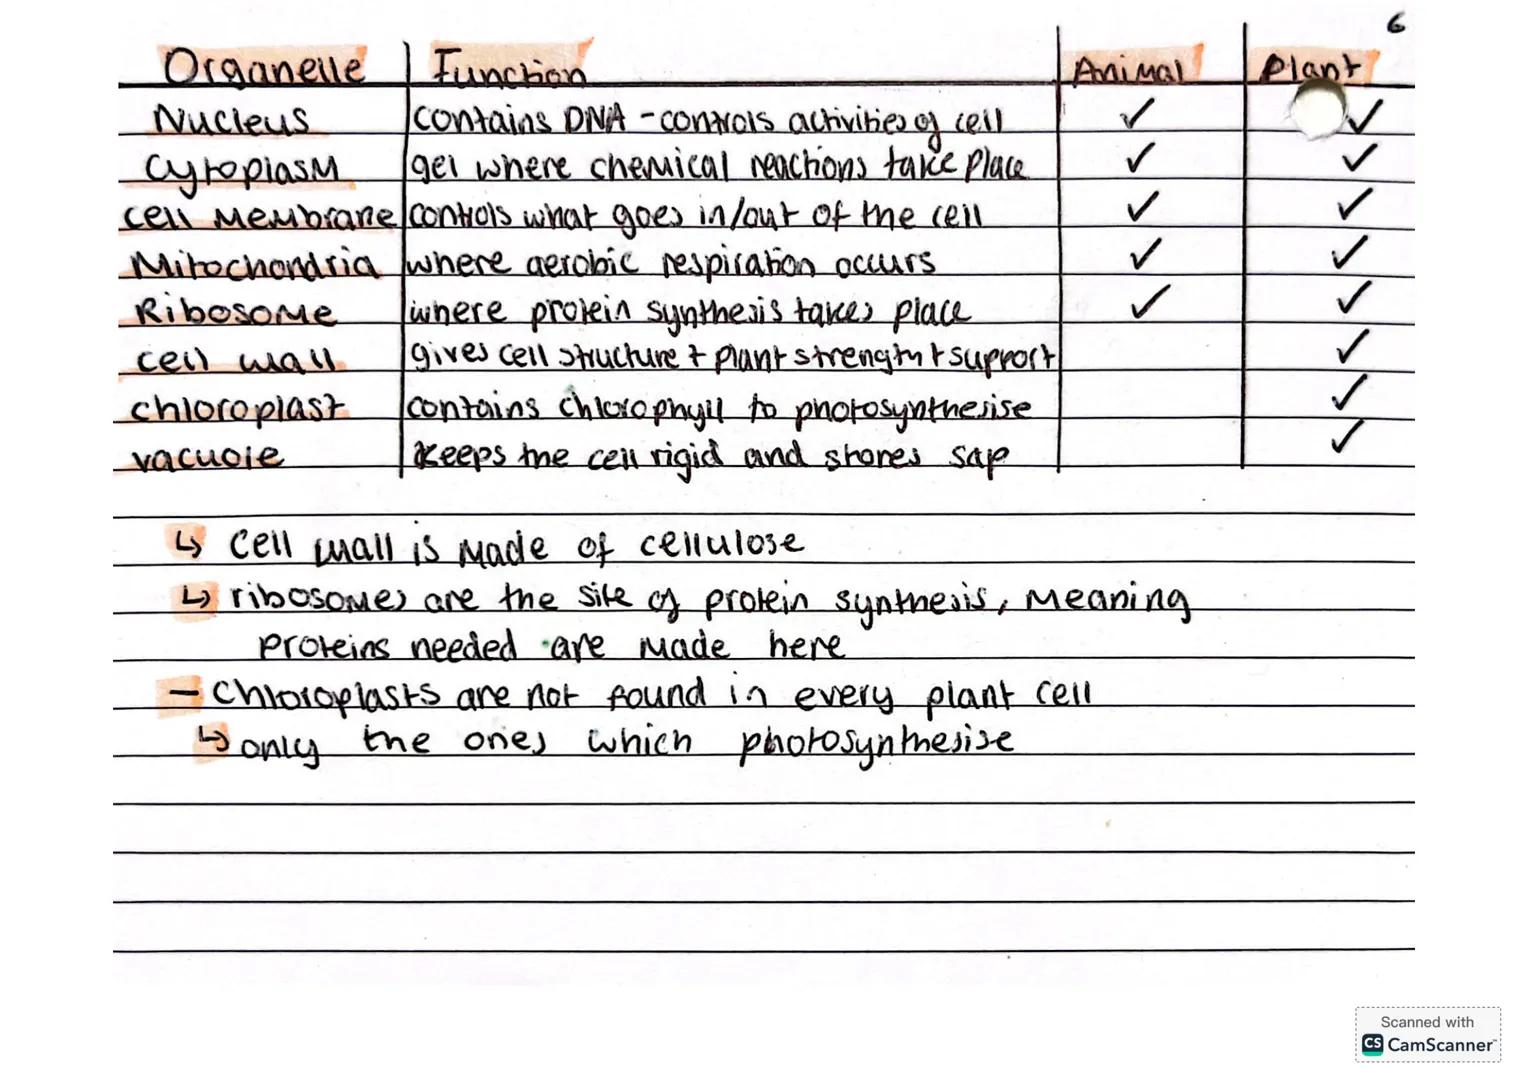 6
Organelle Function Animal Plant
Nucleus contains DNA - controls activities of cell ✓ ✓
Cytoplasm gel where chemical reactions take place ✓ ✓
cell Membrane controls what goes in/out of the cell ✓ ✓
Mitochondria where aerobic respiration occurs ✓ ✓
Ribosome where protein synthesis takes place ✓ ✓
cell wall gives cell structure + plant strength + support ✓
chloroplast contains chlorophyll to photosynthesise ✓
vacuole keeps the cell rigid and stores sap ✓
↳ Cell wall is made of cellulose
↳ ribosomes are the site of protein synthesis, meaning
proteins needed are made here
- Chloroplasts are not found in every plant cell
↳ only the ones which photosynthesise
Scanned with
CS CamScanner